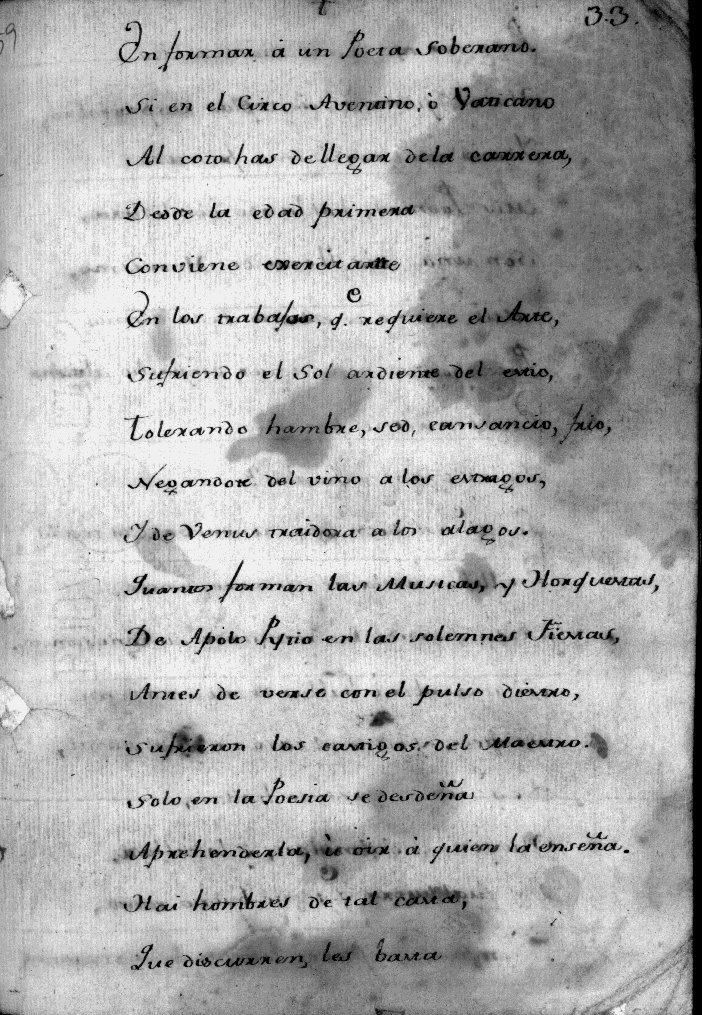 33.
En formar á un Poeta soberano.
Si en el Circo Aventino, ò Vaticano
Al coto has de llegar de la carrera,
Desde la edad primera
Conviene exercitarte
En los trabajos, q.e requiere el Arte,
Sufriendo el Sol ardiente del estio,
Tolerando hambre, sed, cansancio, frio,
Negandote del vino a los estragos,
Y de Venus traidora a los alagos.
Quantos forman las Musicas, y Horquestas,
De Apolo Pytio en las solemnes Fiestas,
Antes de verse con el pulso diestro,
Sufrieron los castigos del Maestro.
Solo en la Poesia se desdeña
Aprehenderla, ù oir à quien la enseña.
Hai hombres de tal casta,
Que discurren, les basta